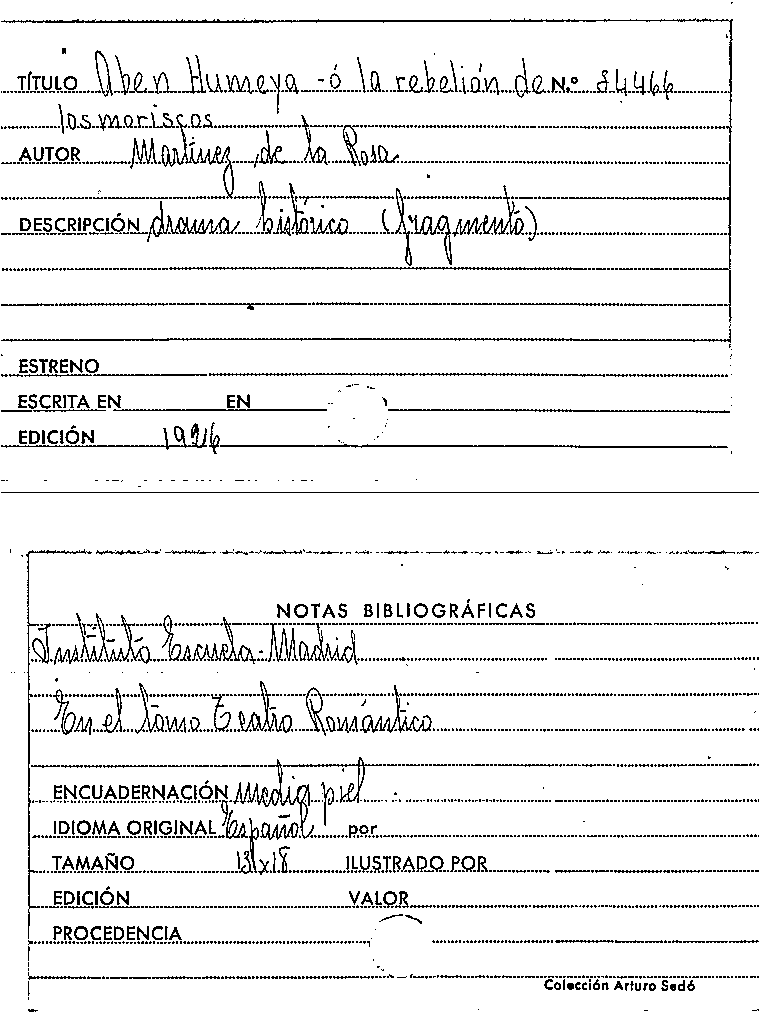 TÍTULO Aben Humeya - ó la rebelión de N.º 34466
los moriscos
AUTOR Martínez de la Rosa
DESCRIPCIÓN drama histórico (fragmento)
ESTRENO
ESCRITA EN EN
EDICIÓN 1926
NOTAS BIBLIOGRÁFICAS
Instituto Escuela - Madrid
En el tomo Teatro Romántico
ENCUADERNACIÓN media piel
IDIOMA ORIGINAL Español por
TAMAÑO 13x18 ILUSTRADO POR
EDICIÓN VALOR
PROCEDENCIA
Colección Arturo Sedó